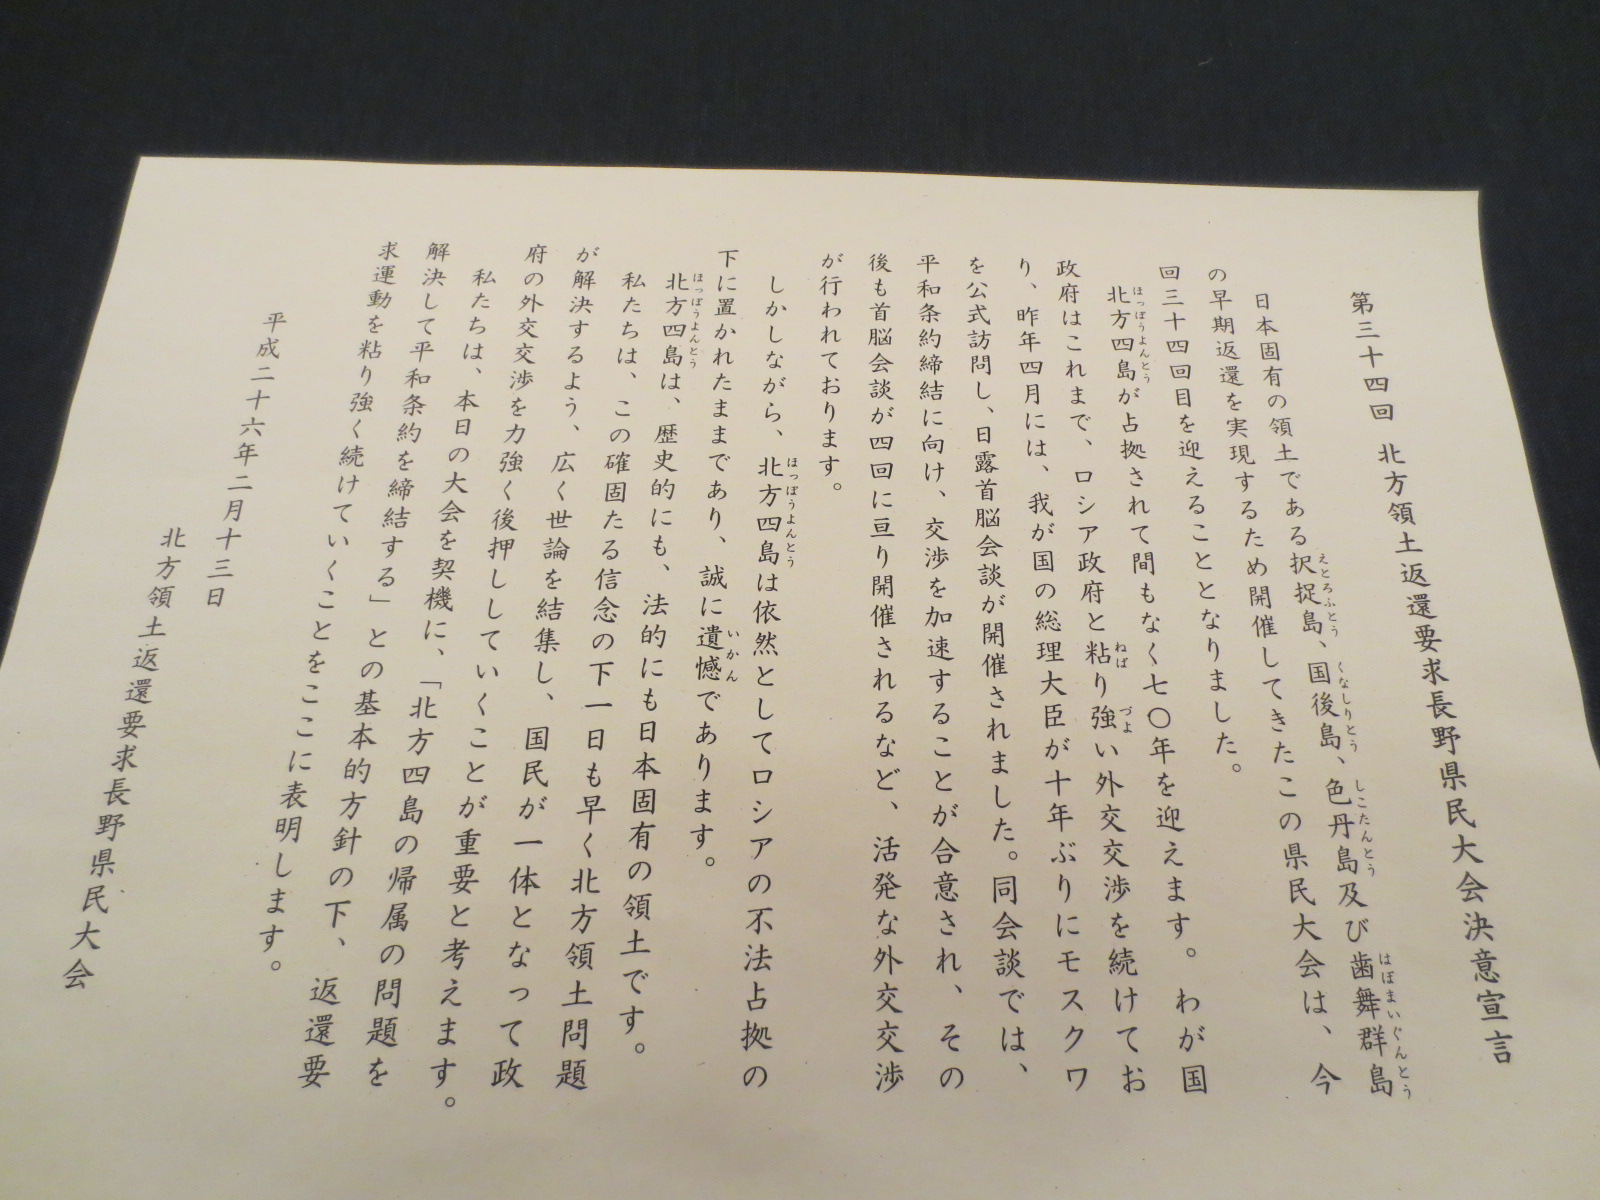 第三十四回 北方領土返還要求長野県民大会決意宣言
日本固有の領土である択捉島、国後島、色丹島及び歯舞群島
えとろふとう くなしりとう しこたんとう はぼまいぐんとう
の早期返還を実現するため開催してきたこの県民大会は、今
回三十四回目を迎えることとなりました。
北方四島が占拠されて間もなく七〇年を迎えます。わが国
ほっぽうよんとう
政府はこれまで、ロシア政府と粘り強い外交交渉を続けてお
ねば づよ
り、昨年四月には、我が国の総理大臣が十年ぶりにモスクワ
を公式訪問し、日露首脳会談が開催されました。同会談では、
平和条約締結に向け、交渉を加速することが合意され、その
後も首脳会談が四回に亘り開催されるなど、活発な外交交渉
が行われております。
しかしながら、北方四島は依然としてロシアの不法占拠の
ほっぽうよんとう
下に置かれたままであり、誠に遺憾であります。
いかん
北方四島は、歴史的にも、法的にも日本固有の領土です。
ほっぽうよんとう
私たちは、この確固たる信念の下一日も早く北方領土問題
が解決するよう、広く世論を結集し、国民が一体となって政
府の外交交渉を力強く後押ししていくことが重要と考えます。
私たちは、本日の大会を契機に、「北方四島の帰属の問題を
解決して平和条約を締結する」との基本的方針の下、返還要
求運動を粘り強く続けていくことをここに表明します。
平成二十六年二月十三日
北方領土返還要求長野県民大会